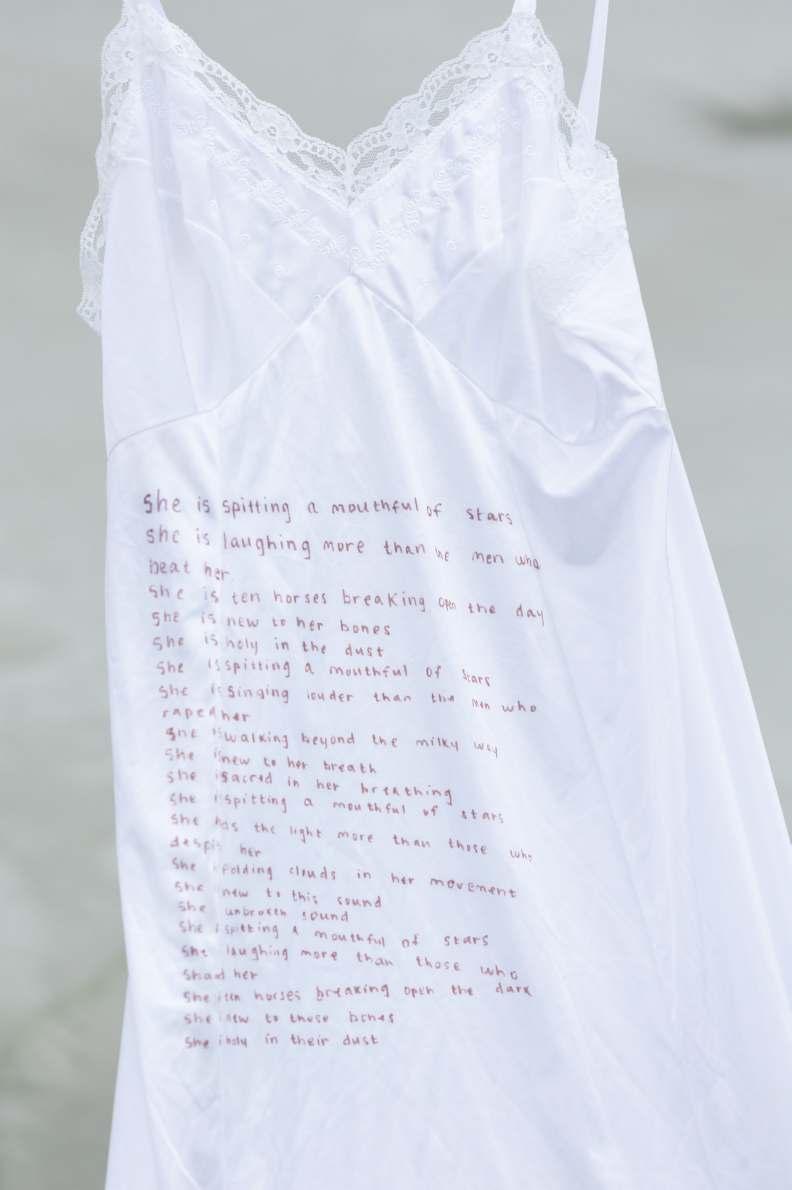 she is spitting a mouthful of stars
she is laughing more than the men who
beat her
she is ten horses breaking open the day
she is new to her bones
she is holy in the dust
she is spitting a mouthful of stars
she is singing louder than the men who
raped her
she is walking beyond the milky way
she is new to her breath
she is sacred in her breathing
she is spitting a mouthful of stars
she has the light more than those who
despis her
she folding clouds in her movement
she new to this sound
she unbroken sound
she is spitting a mouthful of stars
she laughing more than those who
her
she is ten horses breaking open the dark
she is new to those bones
she is holy in their dust